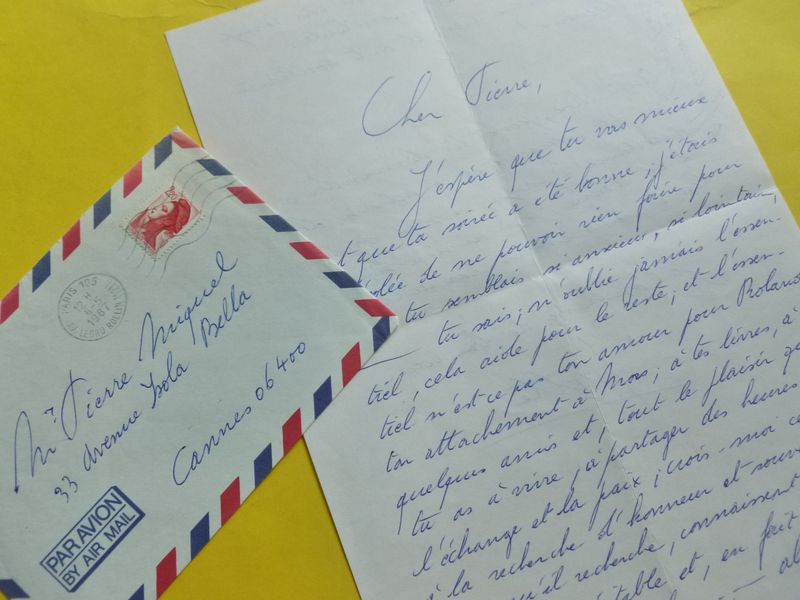 Cher Pierre,
J'espère que tu vas mieux
t que ta soirée a été bonne; j'étais
olée de ne pouvoir rien faire pour
tu semblais si anxieux, si lointain,
tu sais; n'oublie jamais l'essen-
tiel, cela aide pour le reste; et l'essen-
tiel n'est-ce pas ton amour pour Roland
ton attachement à Mors; à tes livres, à
quelques amis et, tout le plaisir qu
tu as à vivre, à partager des heures
l'échange et la paix; crois-moi ce
à la recherche d'honneur et souve
qu'il recherche, connaissent
table et, en fait
2,20
PARIS 105
1987
AV LEDRU ROLLIN
Mr Pierre Miquel
33 Avenue Isola Bella
Cannes 06400
PAR AVION
BY AIR MAIL